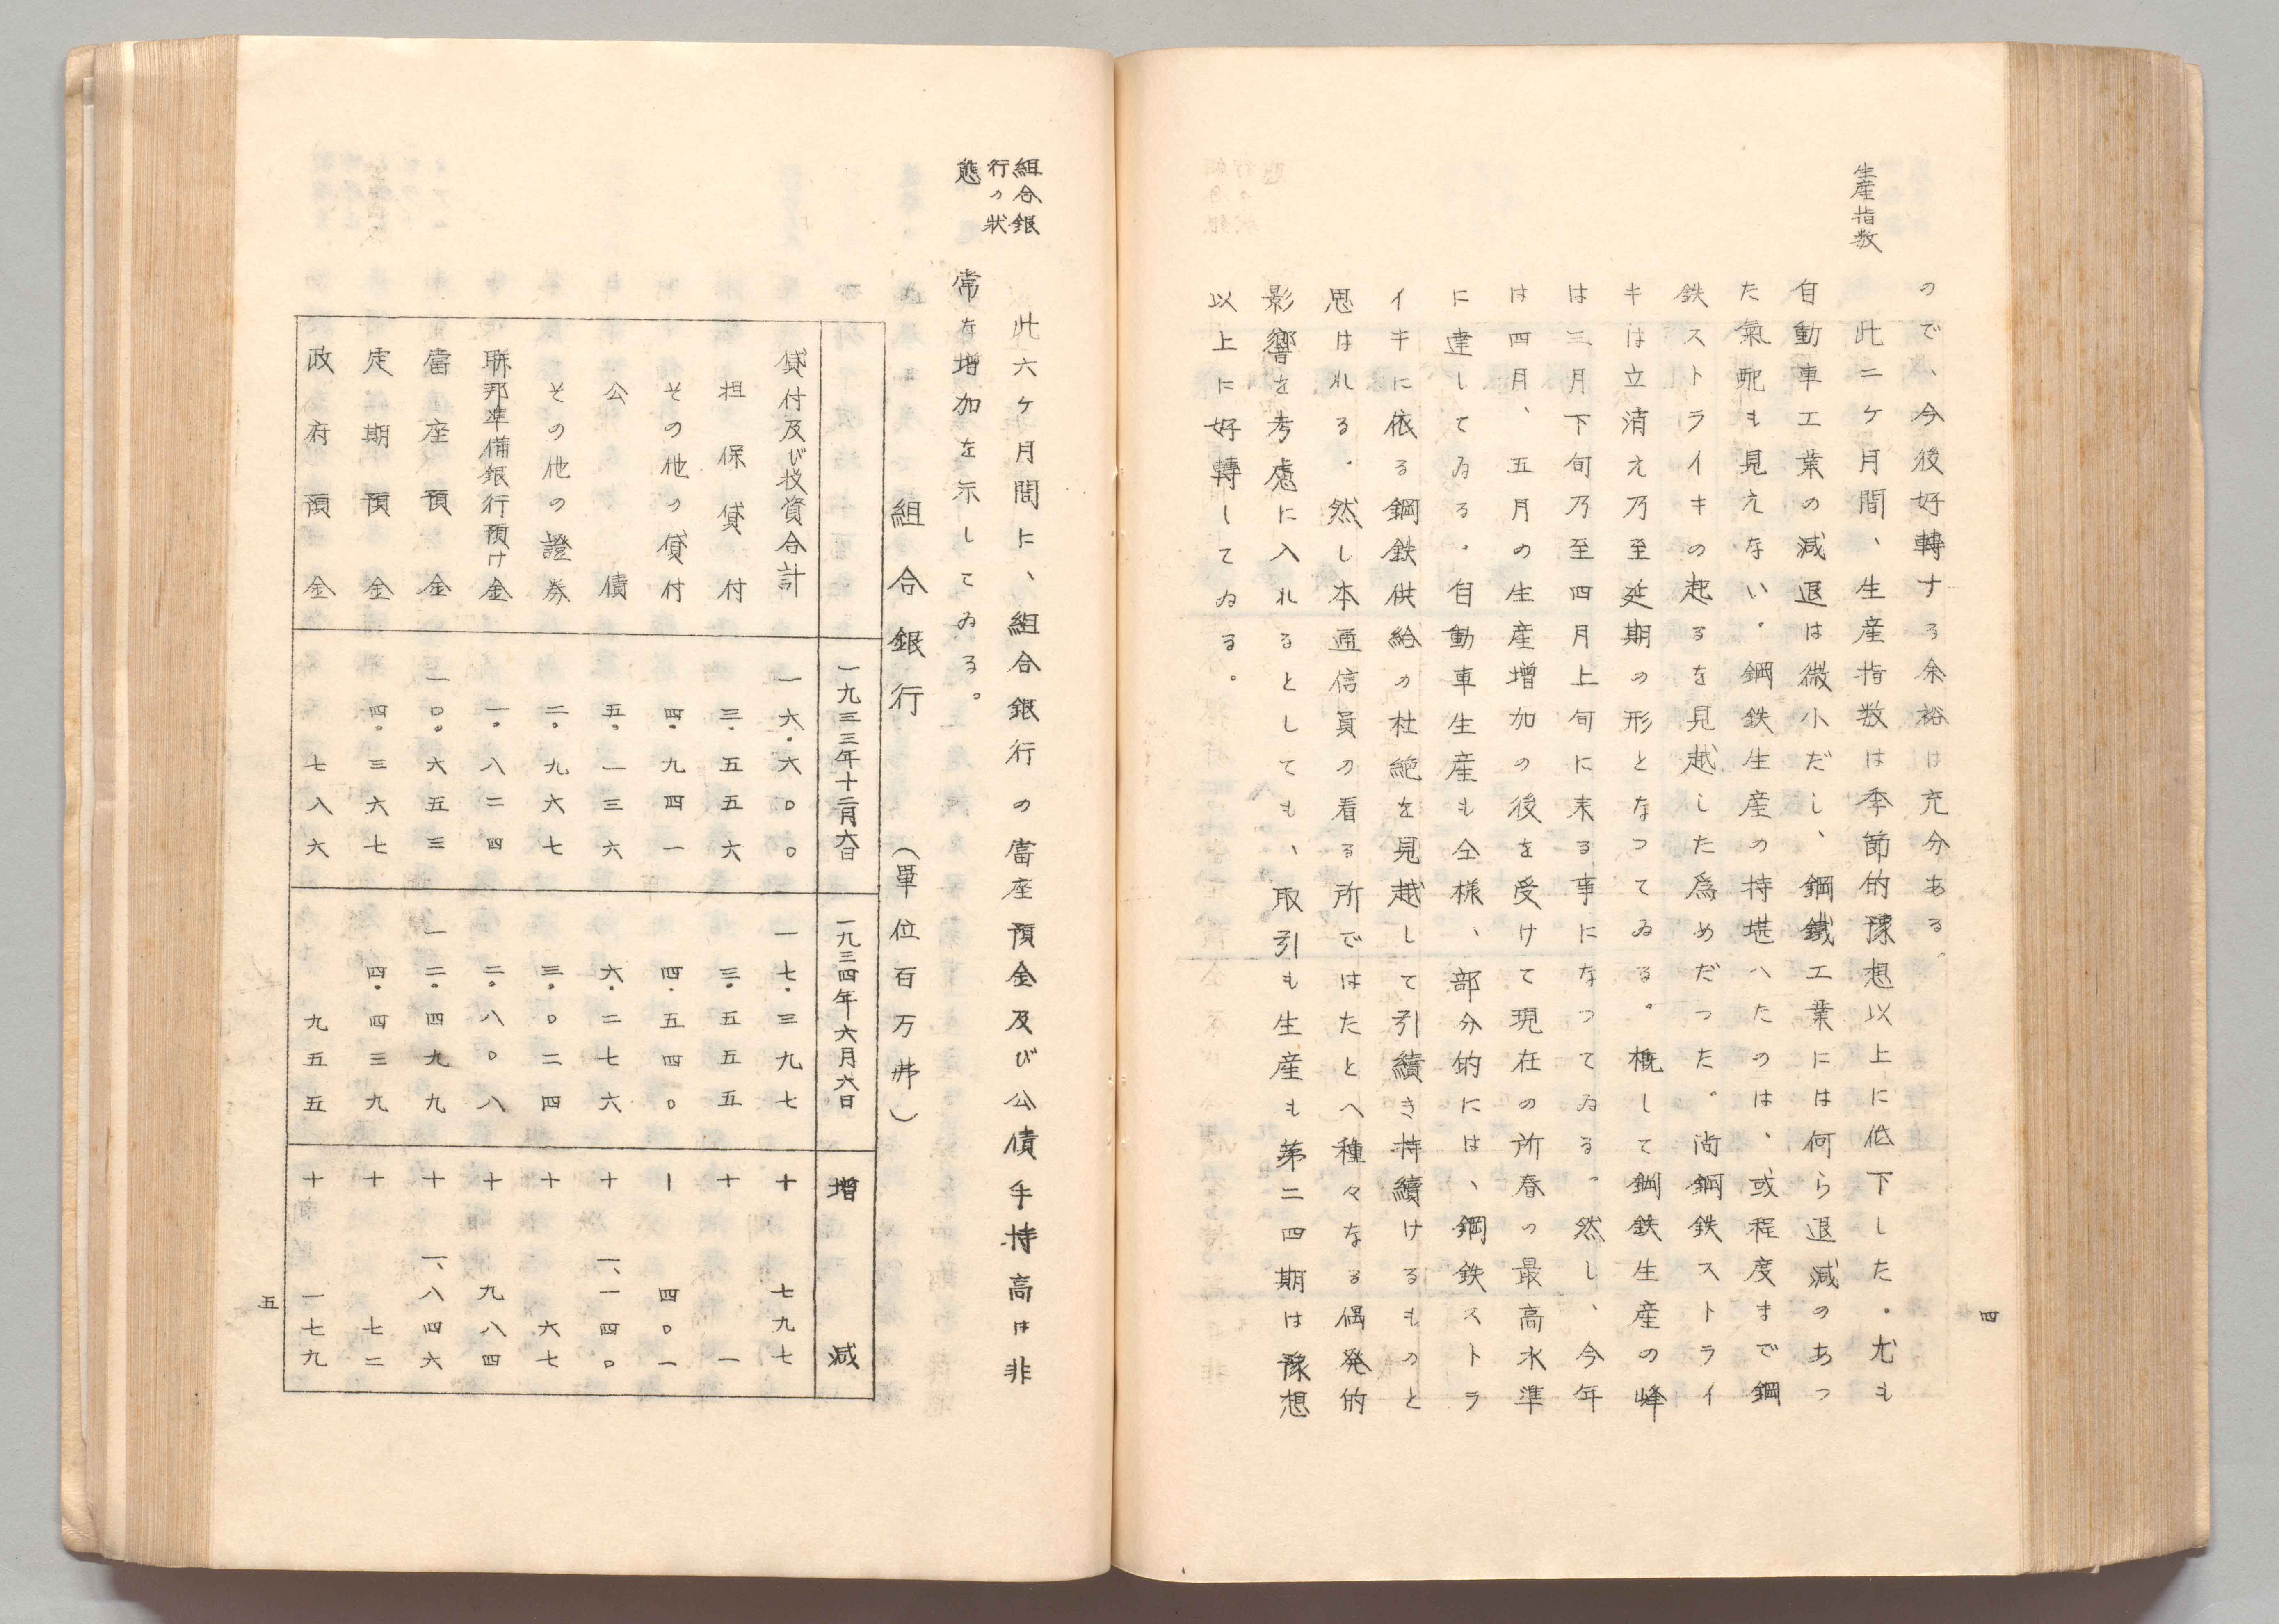 四
生産指数
ので、今後好轉する余裕は充分ある。
此二ケ月間、生産指数は季節的豫想以上に低下した。尤も
自動車工業の減退は微小だし、鋼鐵工業には何ら退減のあっ
た氣配も見えない。鋼鉄生産の持堪へたのは、或程度まで鋼
鉄ストライキの起るを見越した爲めだった。尚鋼鉄ストライ
キは立消え乃至延期の形となってゐる。概して鋼鉄生産の峰
は三月下旬乃至四月上旬に来る事になってゐる。然し、今年
は四月、五月の生産増加の後を受けて現在の所春の最高水準
に達してゐる。自動車生産も仝様、部分的には、鋼鉄ストラ
イキに依る鋼鉄供給の杜絶を見越して引續き持續けるものと
思はれる。然し本通信員の看る所ではたとへ種々なる偶発的
影響を考慮に入れるとしても、取引も生産も第二四期は豫想
以上に好轉してゐる。
組合銀
行の狀
態
此六ケ月間に、組合銀行の當座預金及び公債手持高は非
常な増加を示してゐる。
組合銀行 (單位百万弗)
一九三三年十二月六日 一九三四年六月六日 増減
貸付及び投資合計 一六.六〇〇 一七.三九七 十 七九七
担保貸付 三.五五六 三.五五五 十 一
その他の貸付 四.九四一 四.五四〇 一 四〇一
公債 五.一三六 六.二七六 十 一、一四〇
その他の證券 二.九六七 三.〇二四 十 六七
聯邦準備銀行預け金 一.八二四 二.八〇八 十 九八四
當座預金 一〇.六五三 一二.四九九 十 一、八四六
定期預金 四.三六七 四.四三九 十 七二
政府預金 七八六 九五五 十 一七九
五